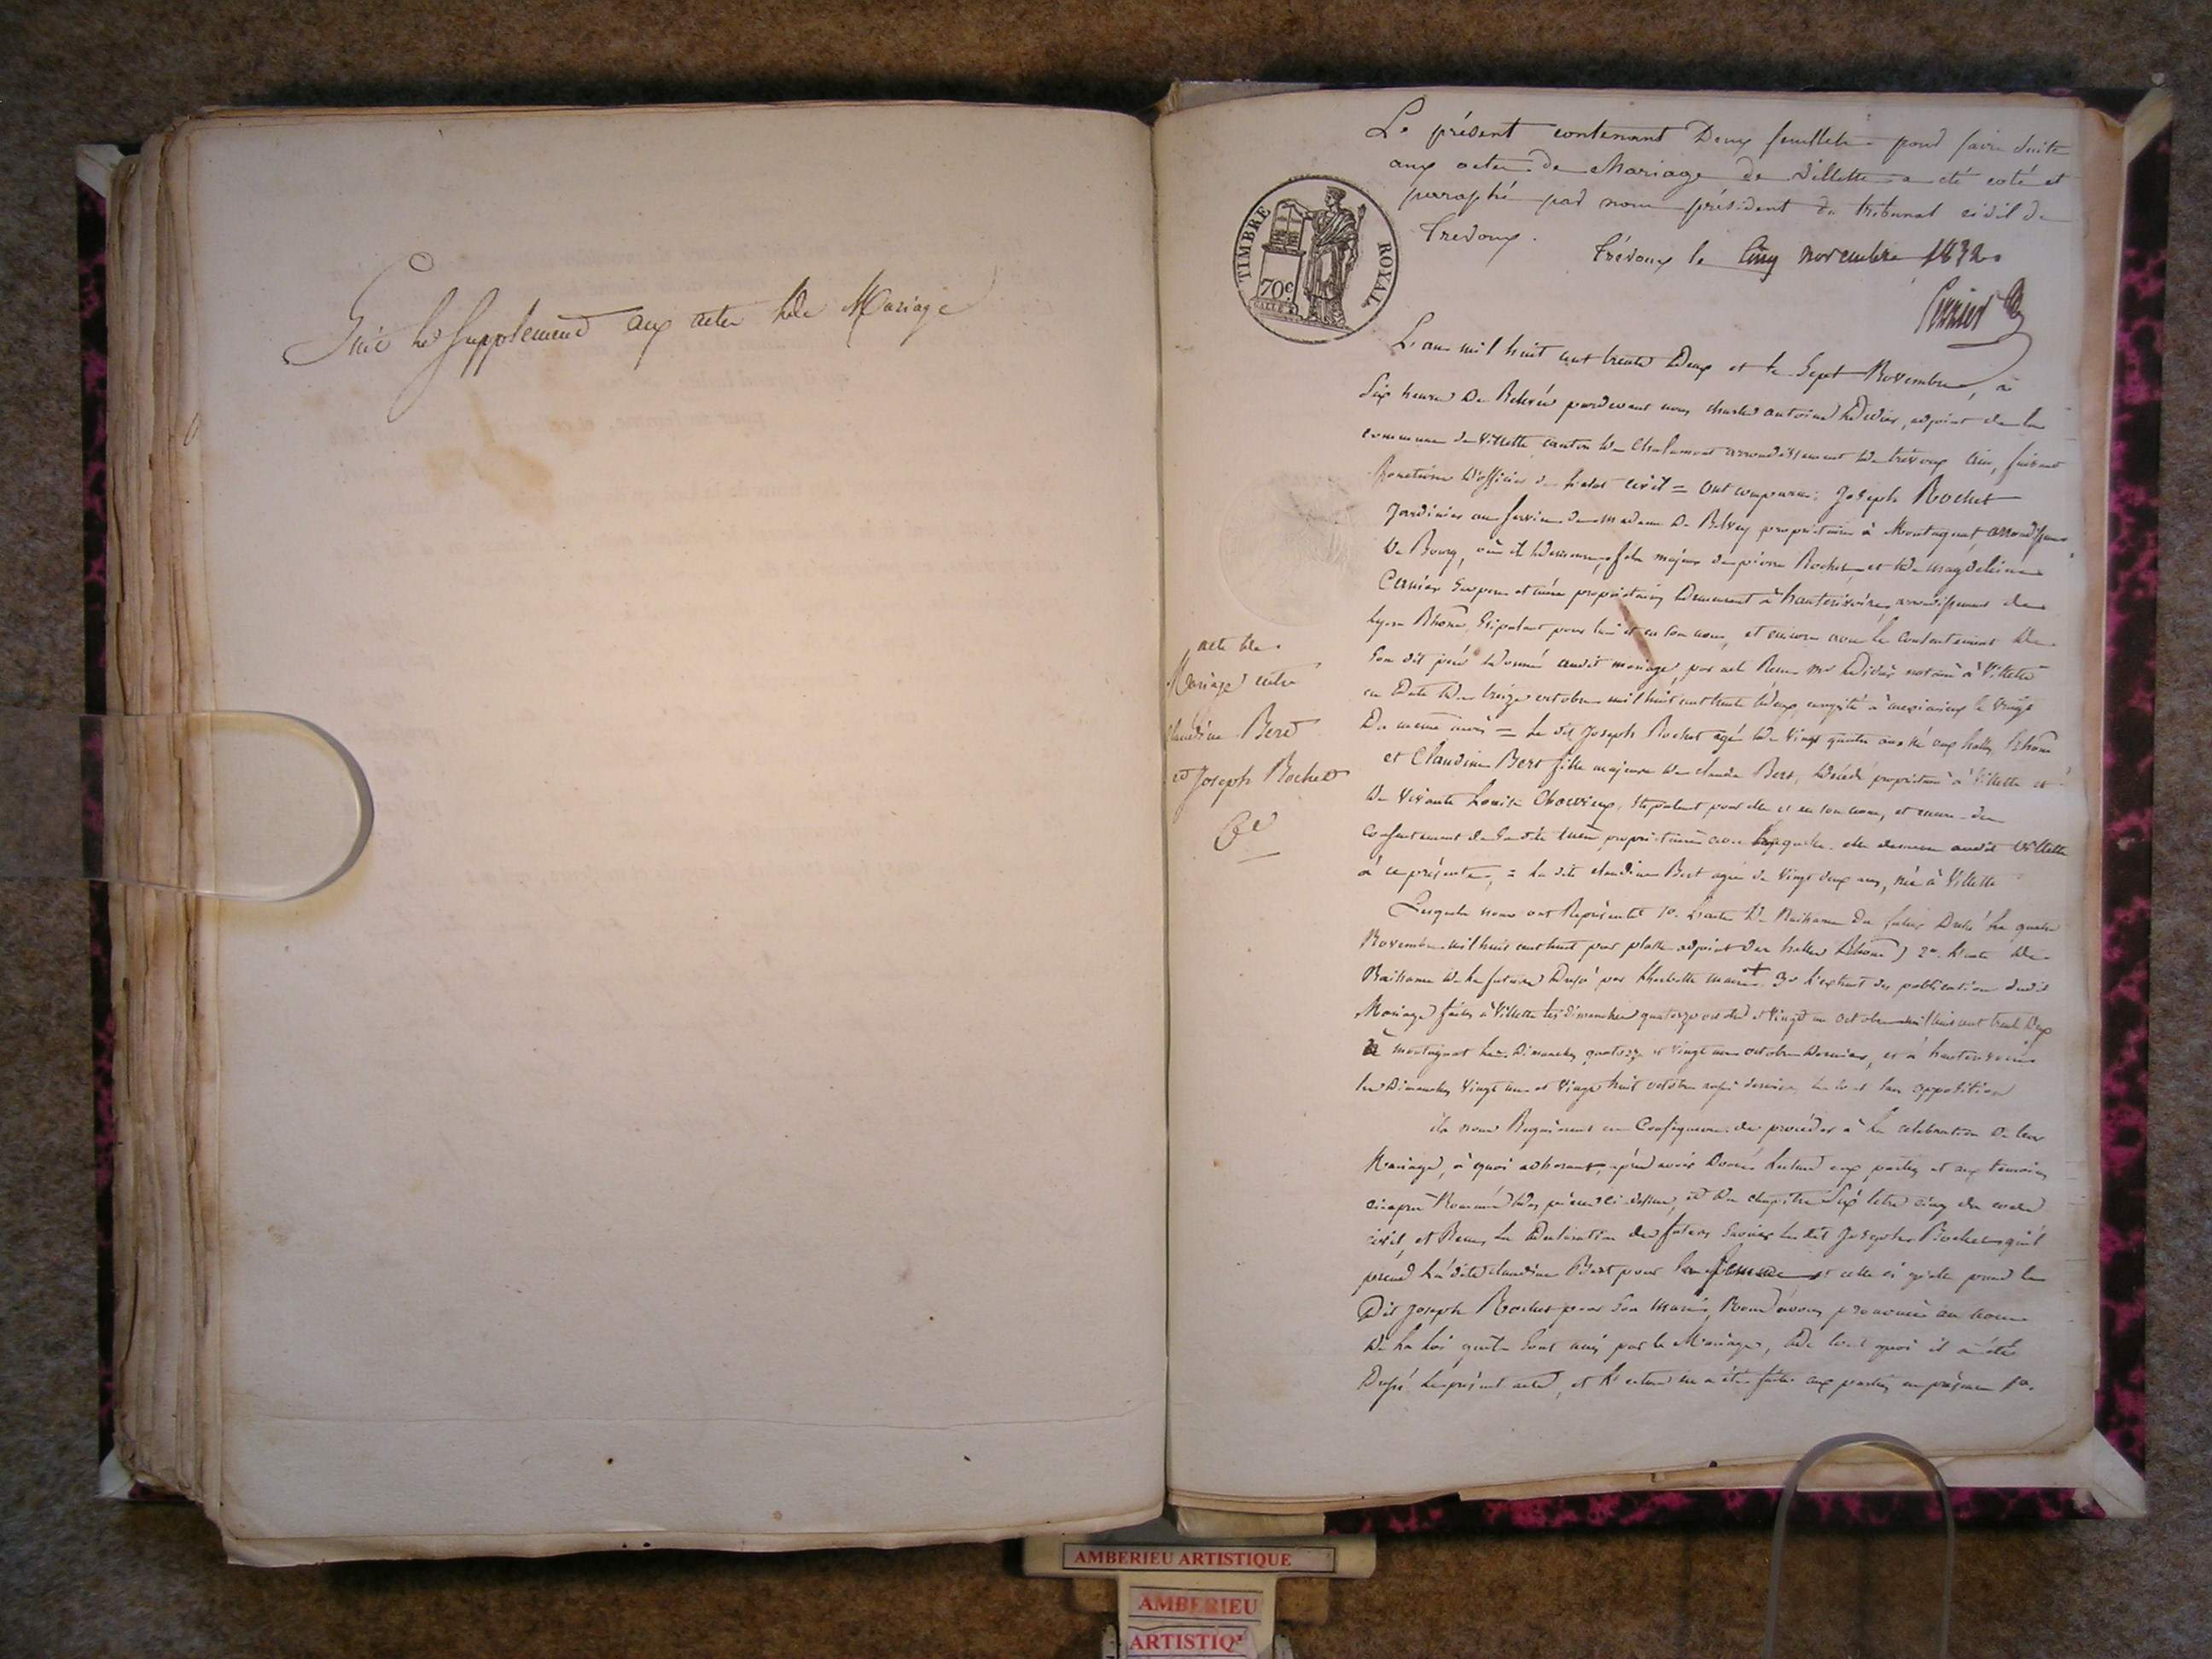 Suit le Supplement aux actes de Mariage
Le présent contenant Deux feuillets pour faire suite
aux actes de Mariage de Villette a été coté et
paraphé par nous président du tribunal civil de
Trevoux.
Trévoux le cinq novembre 1832
TIMBRE ROYAL
70c
L'an mil huit cent trente Deux et le Sept Novembre, à
Six heures De Relevée pardevant nous charles antoine Didier, adjoint de la
commune de Villette canton de Chalamont arrondissement de trévoux ain, faisant
fonctions d'officier de l'etat civil = Ont comparu: Joseph Rochet
Jardinier au service de madame De Belvey propriétaire à Montagnat arrondissement
De Bourg, où il demeure, fils majeur de pierre Rochet et de magdeleine
père et mère propriétaires Demeurant à hauterivoire, arrondissement de
Lyon Rhône, Stipulant pour lui et en son nom, et encore avec le consentement De
Son dit père donné audit mariage, par acte Recu Mr Didier notaire à Villette
en Date du treize octobre mil huit cent trente deux, enregistré à meximieux le vingt
Du meme mois = Le dit Joseph Rochet agé de Vingt quatre ans né aux halles Rhône
et Claudine Bert fille majeure de claude Bert, décédé propriétaire à Villette et
de vivante Louise, Stipulant pour elle et en son nom, et encore du
Consentement de Sa dite mère propriétaire avec laquelle elle demeure audit Villette
à ce présente, = La dite claudine Bert agée de Vingt deux ans, née à Villette
acte de
Mariage entre
Claudine Bert
et Joseph Rochet
Lesquels nous ont Représenté 1o. L'acte De Naissance du futur Dressé le quatre
Novembre mil huit cent huit par adjoint des halles Rhône) 2o. L'acte De
Naissance de la future Dressé par maire + 3o L'extrait des publications dudit
Mariage faites à Villette les dimanches quatorze et Vingt un octobre mil huit cent trente Deux
à montagnat les Dimanches quatorze et vingt un octobre dernier, et à hauterivoire
les Dimanches Vingt un et Vingt huit octobre aussi dernier, le tout sans opposition
ils nous Requièrent en Conséquence de procéder à la celebration De leur
Mariage, à quoi adherant, après avoir Donné Lecture aux parties et aux temoins
ci après Nommés des pièces ci-dessus, et du chapitre Six titre cinq du code
civil, et Recu la Declaration des futurs savoir le dit Joseph Rochet qu'il
prend la dite claudine Bert pour sa femme et celle ci qu'elle prend le
Dit Joseph Rochet pour Son mari, Nous avons prononcé au nom
De la Loi qu'ils Sont unis par le Mariage, de tout quoi il a été
Dressé le présent acte, et lecture en a été faite aux parties en présence 1o.
AMBERIEU ARTISTIQUE
AMBERIEU
ARTISTIQ